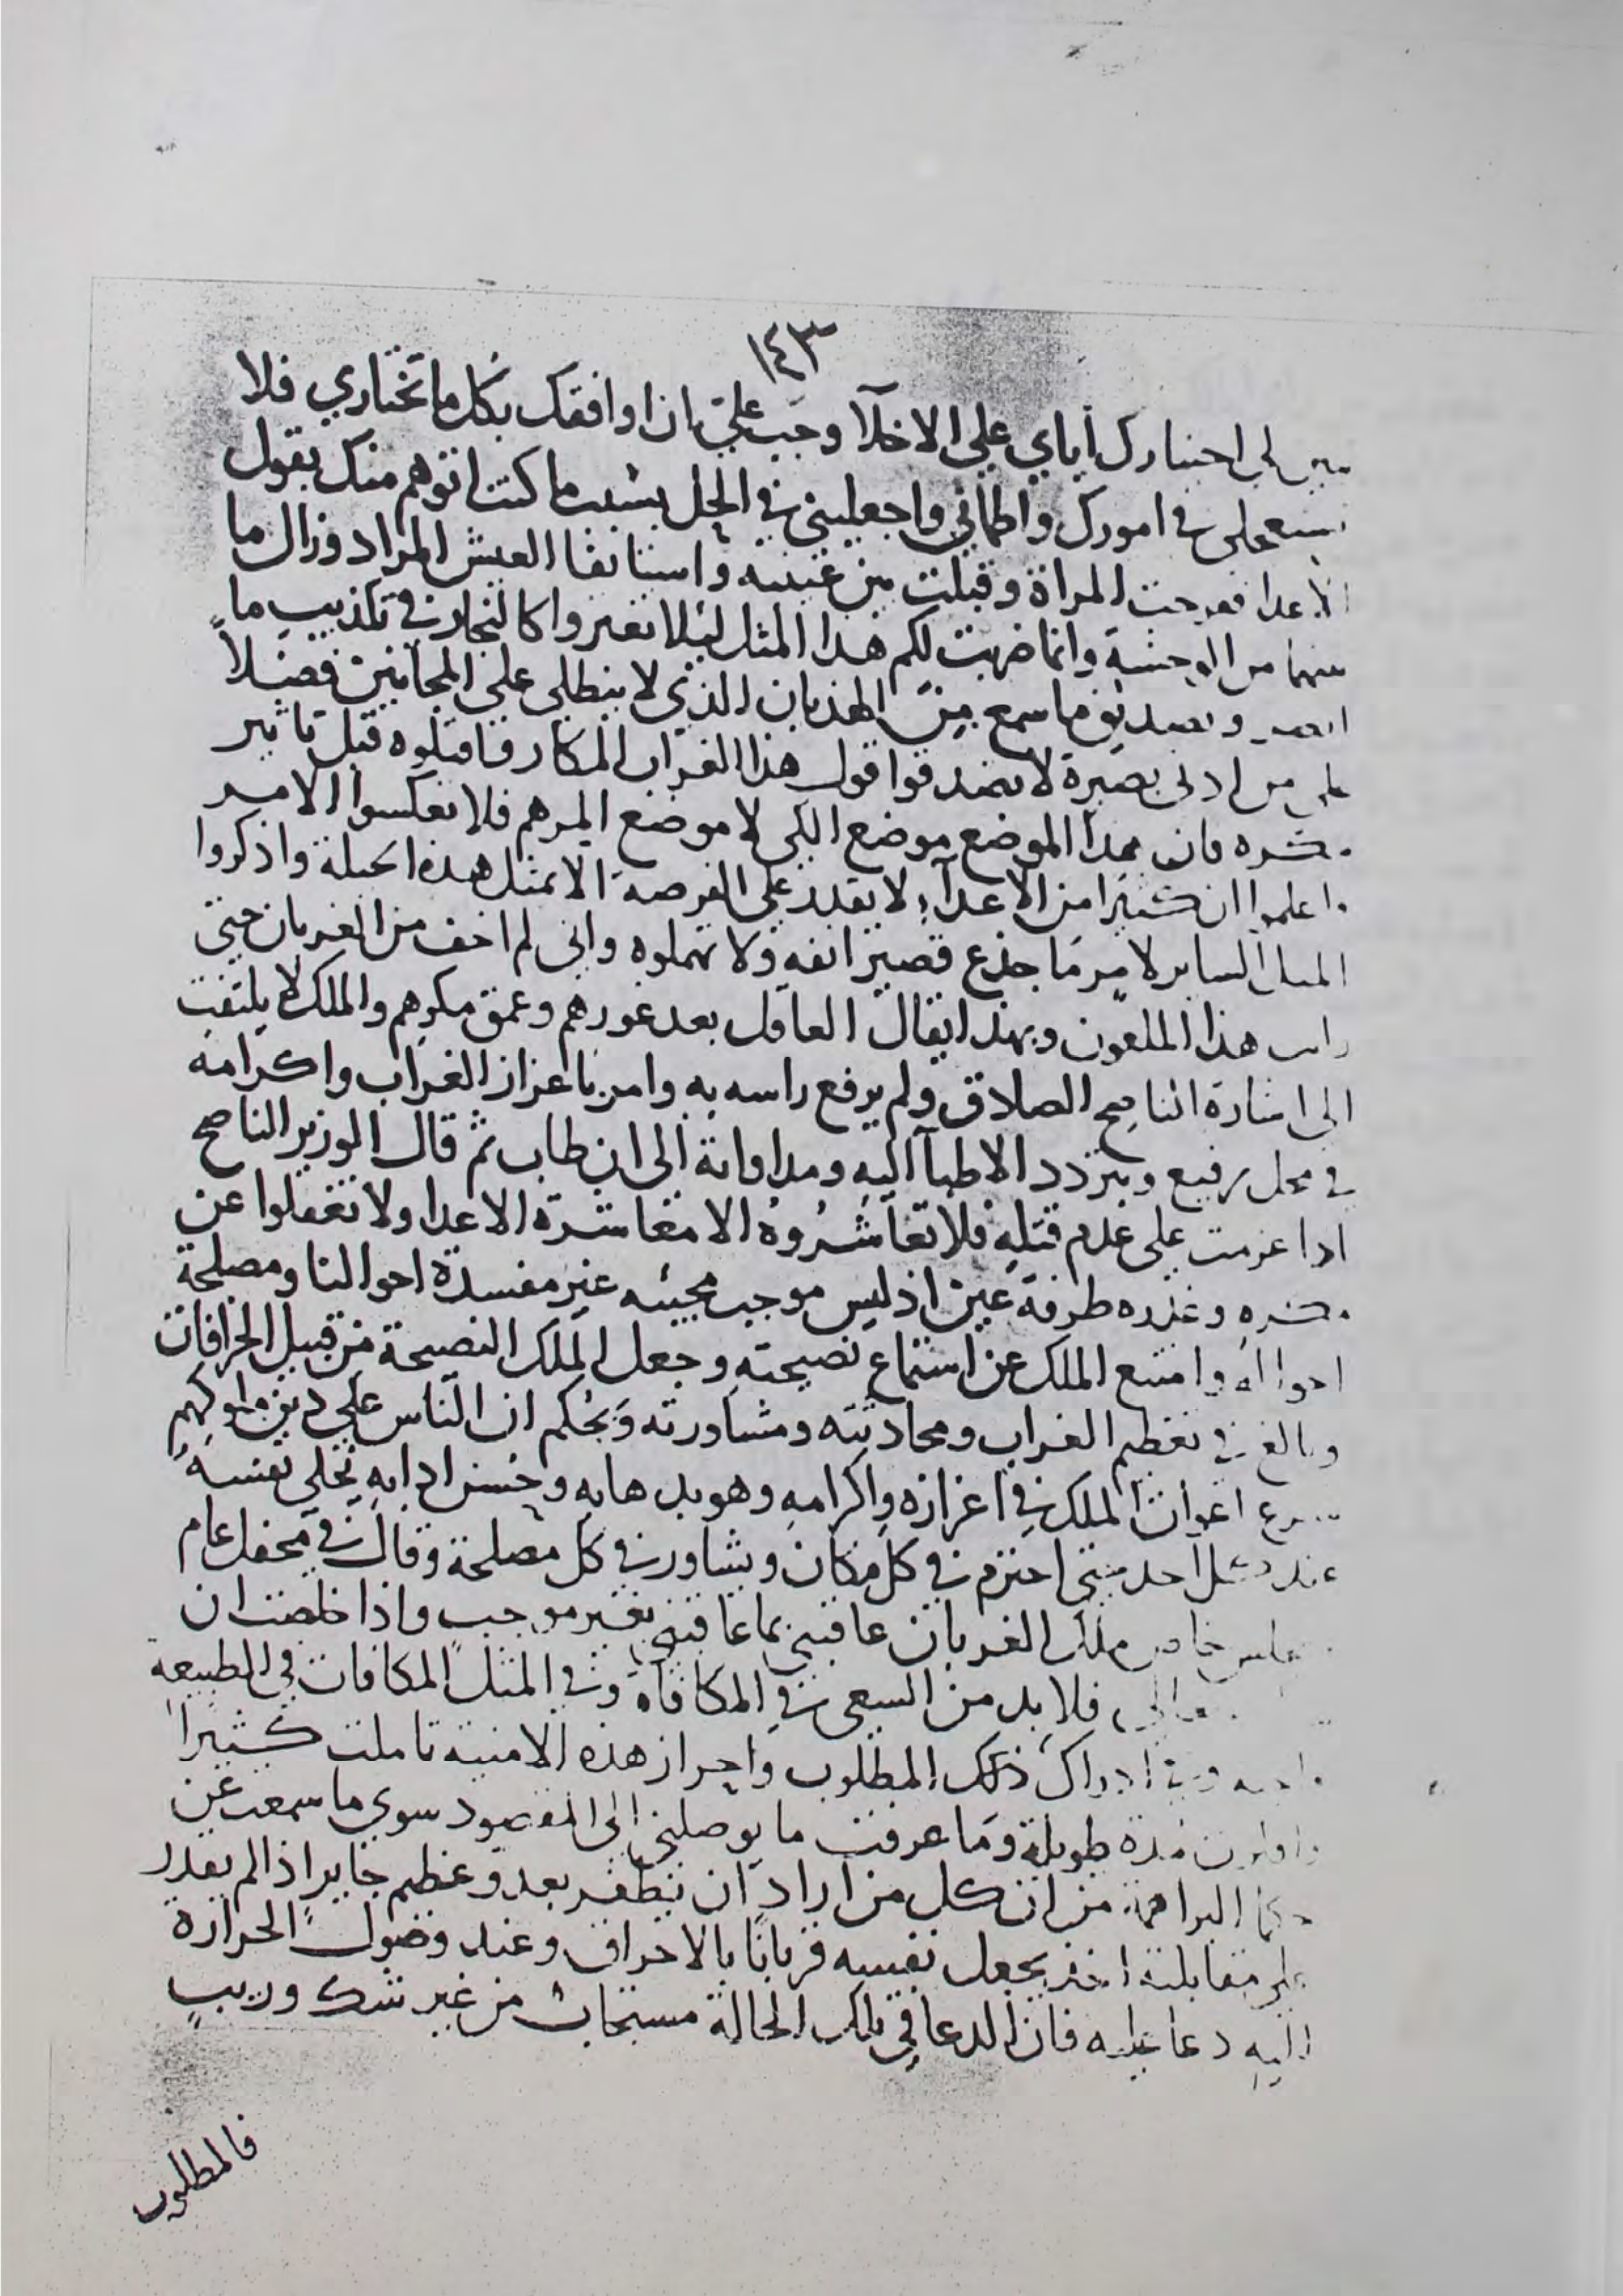 ١٤٣
لي اختيارك أياي علي الاخلآ وجب علي ان اوافقك بكل ما تختاري فلا
في امورك واطماني واجعليني في الحل بسبب ما كنت اتوهم منك بقول
الاعدا ففرحت المراة وقبلت بين عينيه واستانفا العيش المراد وزال ما
بينهما من الوحشة وانما ضربت لكم هذا المثل ليلا تغتروا كالنجار في تكذيب ما
وتصديق ما سمع من الهذيان الذي لا ينطلي علي المجانين فضلاً
علي من ادني بصيرة لا تصدقوا قول هذا الغراب المكار فاقتلوه قبل تاثير
شره فان هذا الموضع موضع الكي لا موضع المرهم فلا تعكسوا الامر
واعلموا ان كثيرا من الاعدآء لا يقدر علي الفرصة الا بمثل هذه الحيلة واذكروا
المثل الساير لامر ما جذع قصير انفه ولا تهملوه واني لم اخف من الغربان حتي
رايت هذا الملعون وبهذا يقال العاقل بعد غورهم وعمق مكرهم والملك لا يلتفت
الي اشارة الناصح الصادق ولم يرفع راسه به وامر باعزاز الغراب واكرامه
في محل رفيع وبتردد الاطبآ اليه ومداواته الي ان طاب ثم قال الوزير الناصح
اذا عزمت علي عدم قتله فلا تعاشروه الا معاشرة الاعدا ولا تغفلوا عن
شره وغدره طرفة عين اذ ليس موجب مجيئه غير مفسدة احوالنا ومصلحة
احواله وامتنع الملك عن استماع نصيحته وجعل الملك النصيحة من قبيل الخرافات
وبالغ في تعظيم الغراب ومحادثته ومشاورته وبحكم ان الناس علي دين ملوكهم
شرع اعوان الملك في اعزازه واكرامه وهو بدهايه وحسن ادابه يحلي نفسه
عند كل احد حتي احترم في كل مكان ويشاور في كل مصلحة وقال في محفل عام
ملك الغربان عاقبني بما عاقبني بغير موجب واذا خلصت ان
فلا بد من السعي في المكافاة وفي المثل المكافات في الطبيعه
ادراك ذلك المطلوب واحراز هذه الامنية تاملت كثيرا
مدة طويلة وما عرفت ما يوصلني الي المقصود سوي ما سمعت عن
حكما البراهمة من ان كل من اراد ان يظفر بعدو عظيم جاير اذا لم يقدر
علي مقابلته اخذ يجعل نفسه قربانا بالاحراق وعند وصول الحرارة
اليه دعا عليه فان الدعا في تلك الحالة مستجاب من غير شك وريب
فالمطلوب